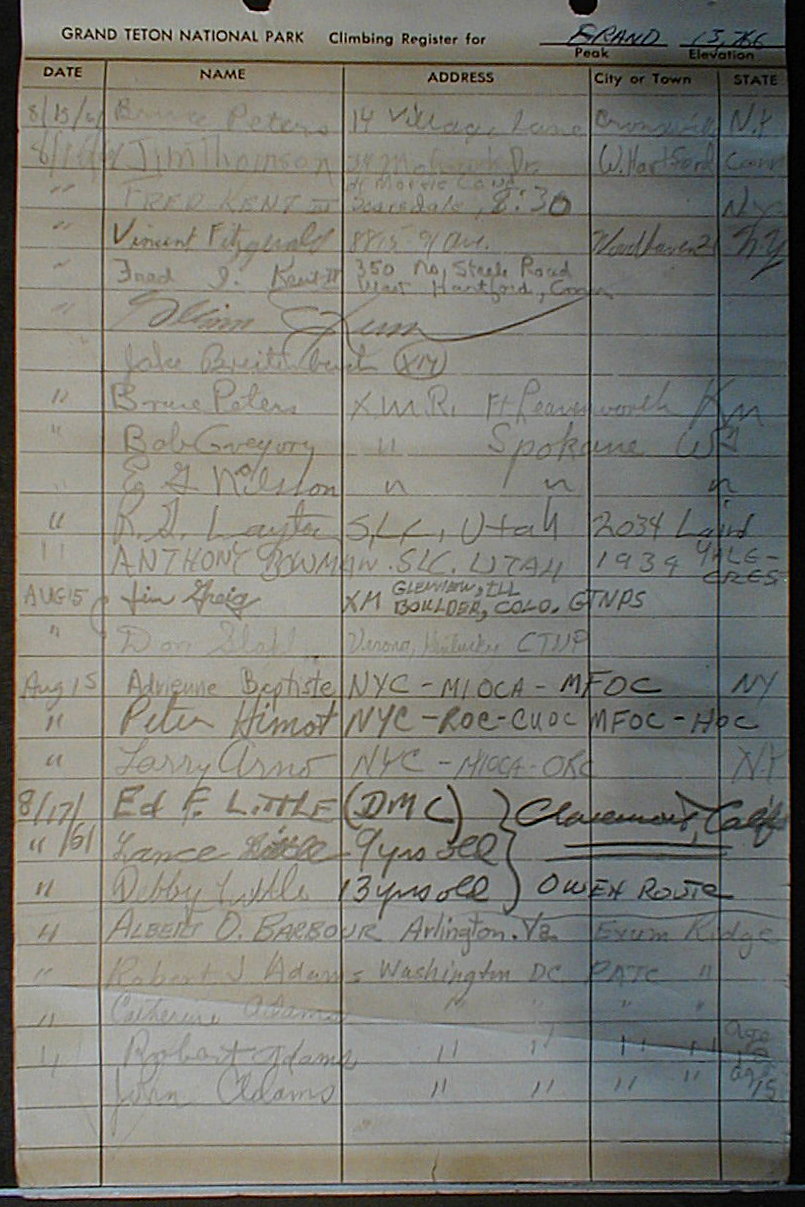 GRAND TETON NATIONAL PARK Climbing Register for GRAND 13,766
Peak Elevation
DATE NAME ADDRESS City or Town STATE
8/15/61 Bruce Peters 14 Village Lane N.Y
Jim Thomson Dr. W. Hartford Conn
" FRED KENT III Scarsdale, 8:30 NY
" Vincent Fitzgerald 8815-91 Ave. Woodhaven 21 NY
" Fred I. Kent II 350 No. Steele Road
West Hartford, Conn
"
Jake Breitenbach (XM)
" Bruce Peters X.M.R. Ft Leavenworth Kan
" Bob Gregory " Spokane
" E G Nilsson " " "
" R. G. Layton SLC, Utah 2034 Laird
" ANTHONY BOWMAN. SLC. UTAH 1939 YALE-
CREST
AUG 15 Jim Greig XM GLENVIEW, ILL
BOULDER, COLO. GTNPS
" Don Verona, Kentucky GTNP
Aug 15 Adrienne Baptiste NYC - MIOCA - MFOC NY
" Peter Himot NYC - ROC - CUOC MFOC - HOC
" Larry Arno NYC - MIOCA - N.Y
8/17/ ED F. LITTLE (DMC) } Claremont, Calif
" /61 Lance Little 9 yrs old
" Debby Little 13 yrs old OWEN ROUTE
" ALBERT D. BARBOUR Arlington. Va Exum Ridge
" Robert J Adams Washington DC PATC "
" Catherine Adams " " " "
" Robert Adams " " " " age
" John Adams " " " " age 15